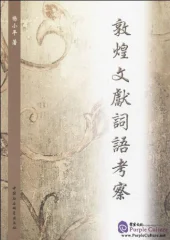 敦煌文獻詞語考察
楊小平 著
Purple Culture
www.PurpleCulture.net